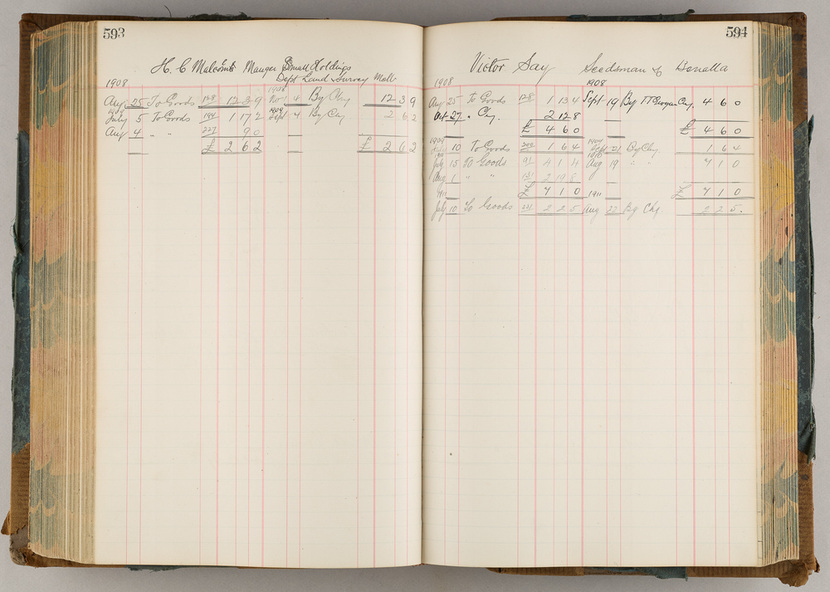 593
H. C Malcomb Manger Small Holdings
Dept Land Survey Melb
1908 1908
Aug 25 To Goods 128 12 3 9 4 By Chq 12 3 9
1909 1909
July 5 To Goods 194 1 17 2 Sept 4 By Chq 2 6 2
Aug 4 " " 227 9 0
£ 2 6 2 2 6 2
594
Victor Say Seedsman & Benalla
1908 1908
Aug 25 To Goods 128 1 13 4 Sept 19 By Chq 4 6 0
Oct 27 " Chq 2 12 8
£ 4 6 0 £ 4 6 0
1909 1909
10 To Goods 1 6 4 Sept 21 By Chq 1 6 4
July 15 To Goods 4 1 1 Aug 19 " " 7 1 0
Aug 1 " " 2 19 8
£ 7 1 0 £ 7 1 0
1911 1911
July 10 To Goods 2 2 5 Aug 22 By Chq 2 2 5